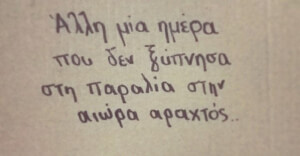 Άλλη μία ημέρα
που δεν ξύπνησα
στη παραλία στην
αιώρα αραχτός..